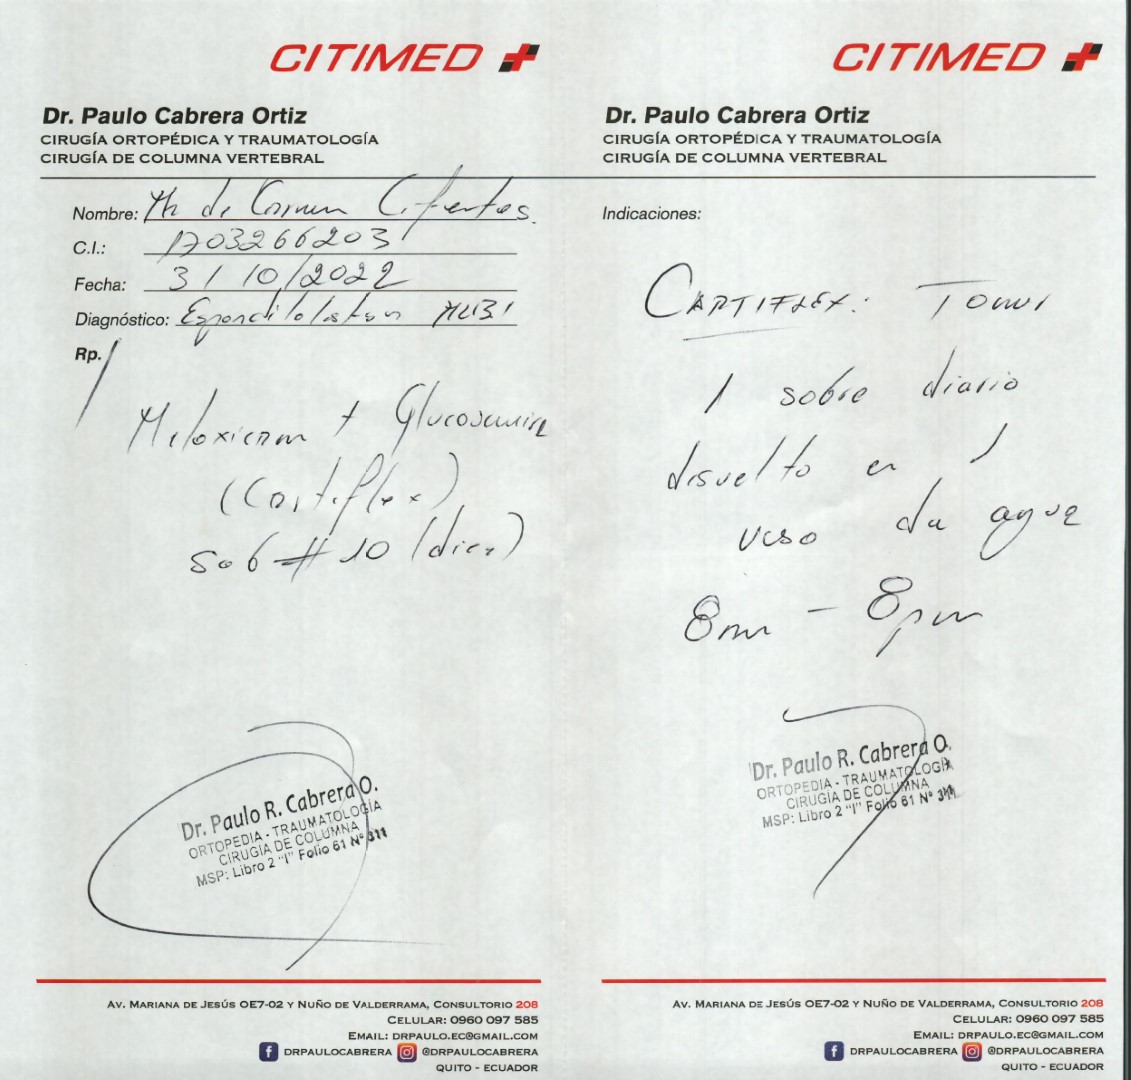 CITIMED
Dr. Paulo Cabrera Ortiz
CIRUGÍA ORTOPÉDICA Y TRAUMATOLOGÍA
CIRUGÍA DE COLUMNA VERTEBRAL
Nombre: Cifuentes.
C.I.:
Fecha: 31/10/2022
Diagnóstico:
Rp.
Meloxicam + Glucosamina
(Cartiflex)
Sob # 10 (diez)
Dr. Paulo R. Cabrera O.
ORTOPEDIA - TRAUMATOLOGÍA
CIRUGIA DE COLUMNA
MSP: Libro 2 "I" Folio 61 Nº 311
AV. MARIANA DE JESÚS OE7-02 Y NUÑO DE VALDERRAMA, CONSULTORIO 208
CELULAR: 0960 097 585
EMAIL: DRPAULO.EC@GMAIL.COM
DRPAULOCABRERA @DRPAULOCABRERA
QUITO - ECUADOR
CITIMED
Dr. Paulo Cabrera Ortiz
CIRUGÍA ORTOPÉDICA Y TRAUMATOLOGÍA
CIRUGÍA DE COLUMNA VERTEBRAL
Indicaciones:
CARTIFLEX: Tomar
1 sobre diario
disuelto en
vaso de agua
8am - 8pm
Dr. Paulo R. Cabrera O.
ORTOPEDIA - TRAUMATOLOGÍA
CIRUGIA DE COLUMNA
MSP: Libro 2 "I" Folio 61 Nº 311
AV. MARIANA DE JESÚS OE7-02 Y NUÑO DE VALDERRAMA, CONSULTORIO 208
CELULAR: 0960 097 585
EMAIL: DRPAULO.EC@GMAIL.COM
DRPAULOCABRERA @DRPAULOCABRERA
QUITO - ECUADOR